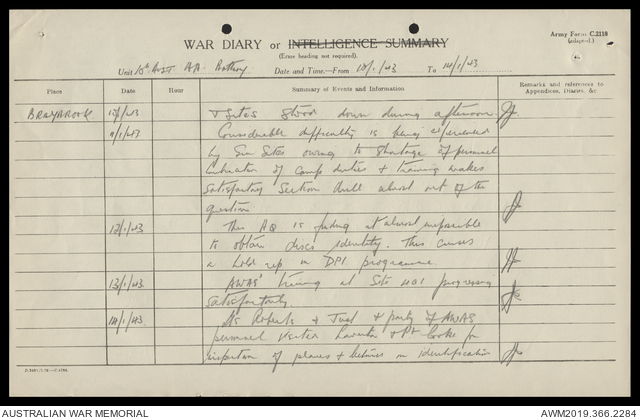 Army Form C.2118
(adapted.)
WAR DIARY or INTELLIGENCE SUMMARY
(Erase heading not required).
Unit 10th Aust AA Battery Date and Time—From 12/1/43 To 14/1/43
Place Date Hour Summary of Events and Information Remarks and references to Appendices, Diaries, &c.
BRAYBROOK Sites stood down during afternoon.
Considerable difficulty is being experienced
by Gun Sites owing to shortage of personnel
of camp duties & training makes
satisfactory Section drill almost out of the
question.
12/1/43 This HQ is finding it almost impossible
to obtain discs identity. This causes
a hold up in DPI programme.
13/1/43 AWAS' training at Site progressing
satisfactorily.
14/1/43. Lts Roberts & & party of AWAS
personnel visited Laverton & Pt Cooke for
inspection of planes & lectures on identification
AUSTRALIAN WAR MEMORIAL
AWM2019.366.2284